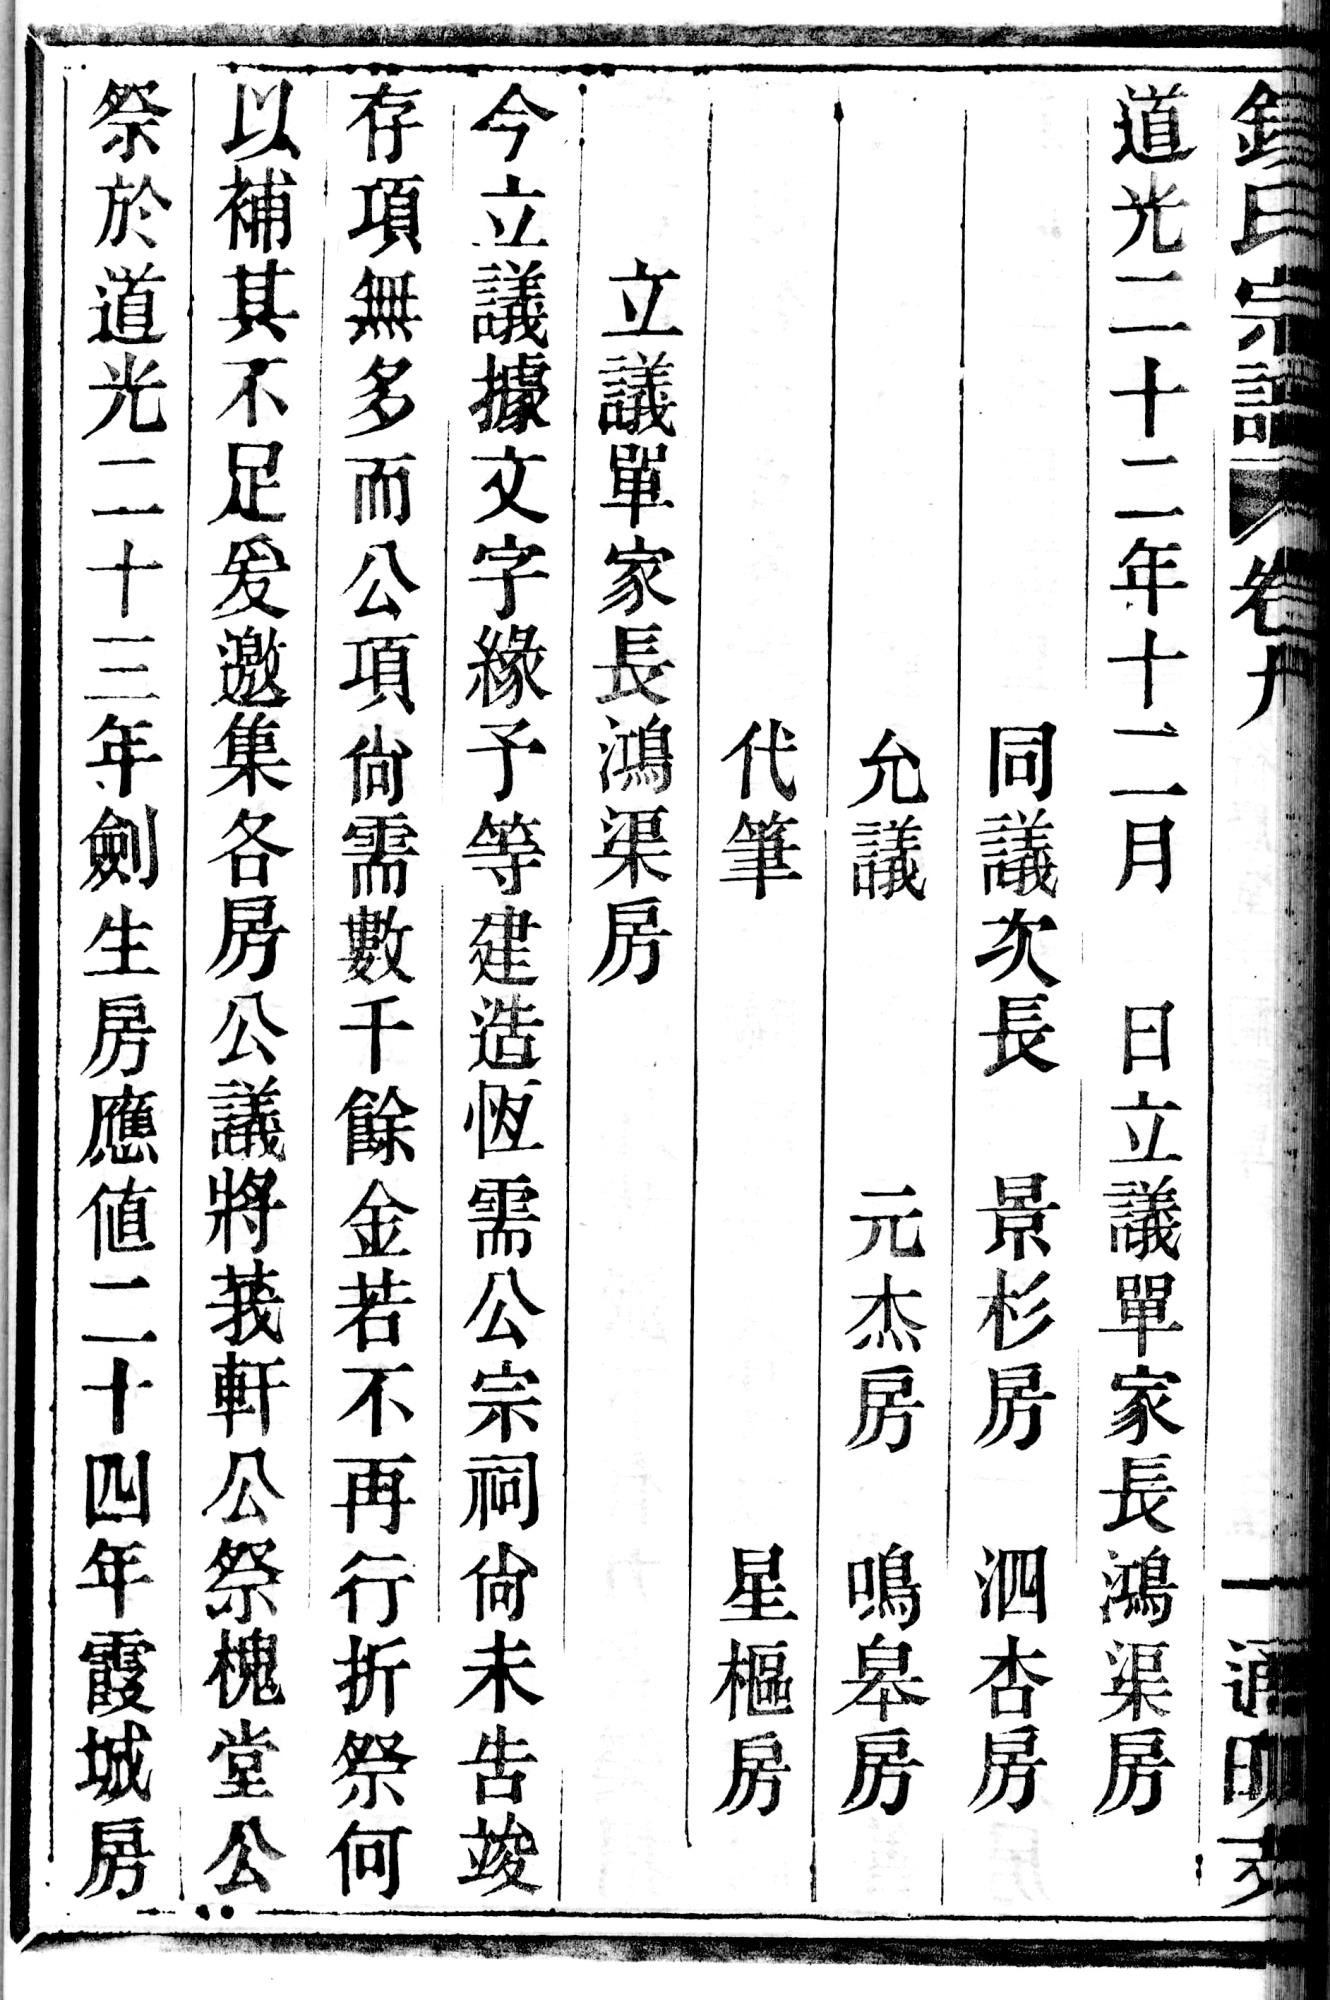 氏宗譜 卷九 一 通明
道光二十二年十二月 日立議單家長鴻渠房
同議次長 景杉房 泗杏房
允議 元杰房 鳴皋房
代筆 星樞房
立議單家長鴻渠房
今立議據文字緣予等建造恆需公宗祠尙未告竣
存項無多而公項尙需數千餘金若不再行折祭何
以補其不足爰邀集各房公議將莪軒公祭槐堂公
祭於道光二十三年劍生房應値二十四年霞城房